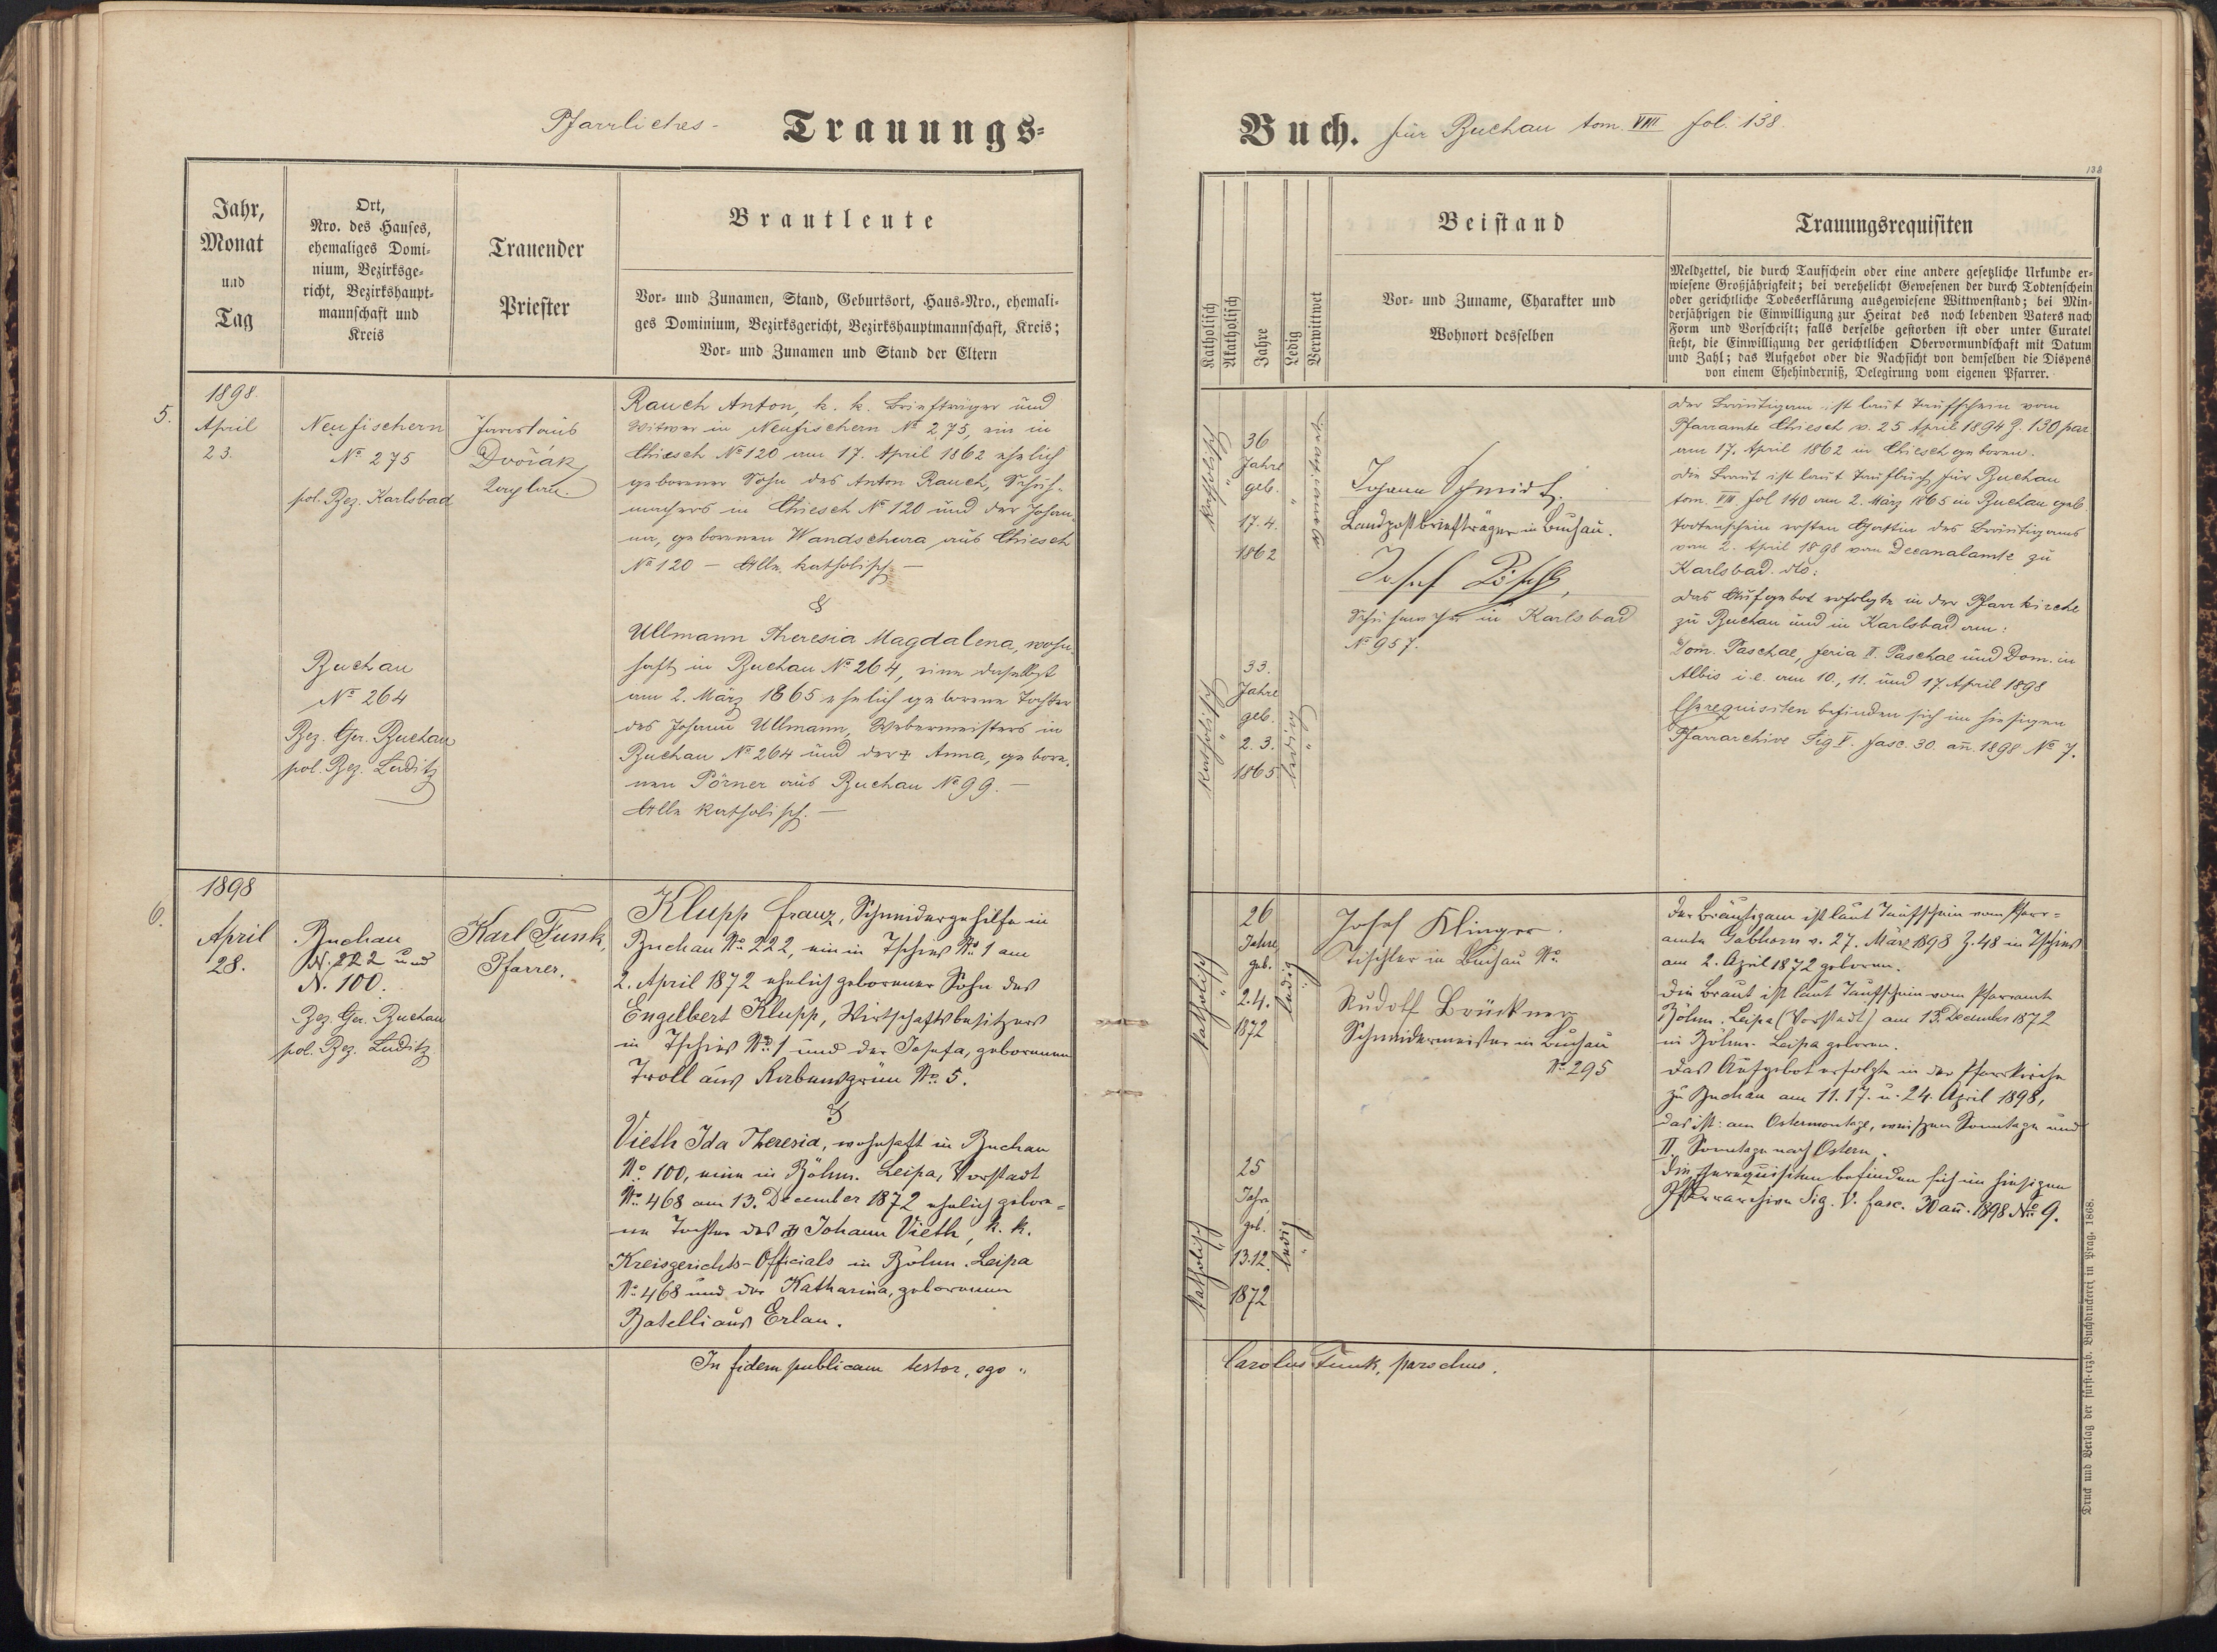 Pfarrliches- Trauungs=
Jahr,
Monat
und
Tag
Ort,
Nro. des Hauses,
ehemaliges Domi=
nium, Bezirksge=
richt, Bezirkshaupt=
mannschaft und
Kreis
Trauender
Priester
Brautleute
Vor= und Zunamen, Stand, Geburtsort, Haus=Nro., ehemali=
ges Dominium, Bezirksgericht, Bezirkshauptmannschaft, Kreis;
Vor= und Zunamen und Stand der Eltern
5.
1898.
April
23.
Neufischern
No. 275
pol. Bez. Karlsbad
Dvořák,
Kaplan.
Rauch Anton, k. k. Briefträger und
Witwer in Neufischern No 275, ein in
Chiesch No 120 am 17. April 1862 ehelich
geborener Sohn des Anton Rauch, Schuh-
machers in Chiesch No 120 und der Johan-
na, geborenen Wandschura aus Chiesch
No 120 — Alle katholisch —
&
Buchau
No 264
Bez. Ger. Buchau
pol. Bez. Luditz
Ullmann Theresia Magdalena, wohn-
haft in Buchau No 264, eine daselbst
am 2. März 1865 ehelich geborene Tochter
des Johann Ullmann, Webermeisters in
Buchau No 264 und der + Anna, gebore-
nen Pörner aus Buchau No 99. —
Alle katholisch. —
6.
1898
April
28.
Buchau
N. 222 und
N. 100.
Bez. Ger. Buchau
pol. Bez. Luditz.
Karl Funk,
Pfarrer.
Klupp Franz, Schneidergehilfe in
Buchau No. 222, ein in Tschies No. 1 am
2. April 1872 ehelich geborener Sohn des
Engelbert Klupp, Wirtschaftsbesitzers
in Tschies No. 1 und der Josefa, geborenen
Troll aus Rabensgrün No. 5.
&
Vieth Ida Theresia, wohnhaft in Buchau
No. 100, eine in Böhm. Leipa, Vorstadt
No. 468 am 13. December 1872 ehelich gebore-
ne Tochter des + Johann Vieth, k. k.
Kreisgerichts-Officials in Böhm. Leipa
No. 468 und der Katharina, geborenen
Batelli aus Erlau.
In fidem publicam testor, ego "
Buch. für Buchau tom. VIII fol. 138.
138
Katholisch
Akatholisch
Jahre
Ledig
Verwittwet
Beistand
Vor= und Zuname, Charakter und
Wohnort desselben
Trauungsrequisiten
Meldzettel, die durch Taufschein oder eine andere gesetzliche Urkunde er=
wiesene Großjährigkeit; bei verehelicht Gewesenen der durch Todtenschein
oder gerichtliche Todeserklärung ausgewiesene Wittwenstand; bei Min=
derjährigen die Einwilligung zur Heirat des noch lebenden Vaters nach
Form und Vorschrift; falls derselbe gestorben ist oder unter Curatel
steht, die Einwilligung der gerichtlichen Obervormundschaft mit Datum
und Zahl; das Aufgebot oder die Nachsicht von demselben die Dispens
von einem Ehehinderniß, Delegirung vom eigenen Pfarrer.
katholisch
36
Jahre
geb.
17. 4.
1862
verwitwet
Johann Schmidt.
Landpostbriefträger in Buchau.
Josef Pöschl,
Schuhmacher in Karlsbad
No 957.
Der Bräutigam ist laut Taufschein vom
Pfarramte Chiesch v. 25 April 1894 Z. 130 par
am 17. April 1862 in Chiesch geboren.
Die Braut ist laut Taufbuch für Buchau
tom. VIII fol 140 am 2. März 1865 in Buchau geb.
Todtenschein ersten Gattin des Bräutigams
vom 2. April 1898 vom Decanalamte zu
Karlsbad. dto:
Das Aufgebot erfolgte in der Pfarrkirche
zu Buchau und in Karlsbad am:
Dom. Paschae, feria II. Paschae und Dom. in
Albis i. e. am 10., 11. und 17. April 1898
Eherequisiten befinden sich im hiesigen
Pfarrarchive Sig V. fasc. 30. an. 1898 No 7.
katholisch
33.
Jahre
geb.
2. 3.
1865
ledig
katholisch
26
Jahre
geb.
2. 4.
1872
ledig
Josef Klinger.
Tischler in Buchau No.
Rudolf Brückner
Schneidermeister in Buchau
No. 295
Der Bräutigam ist laut Taufschein vom Pfarr-
amte Gabhorn v. 27. März 1898 Z. 48 in Tschies
am 2. April 1872 geboren.
Die Braut ist laut Taufschein vom Pfarramte
Böhm. Leipa (Vorstadt) am 13. December 1872
in Böhm. Leipa geboren.
Das Aufgebot erfolgte in der Pfarrkirche
zu Buchau am 11. 17. u. 24. April 1898,
das ist: am Ostermontage, weißen Sonntage und
II. Sonntage nach Ostern.
Die Eherequisiten befinden sich im hiesigen
Pfarrarchive Sig. V. fasc. 30 an. 1898 No. 9.
katholisch
25
Jahre
geb.
13. 12.
1872
ledig
Carolus Funk, parochus.
Druck und Verlag der fürst=erzb. Buchdruckerei in Prag. 1868.